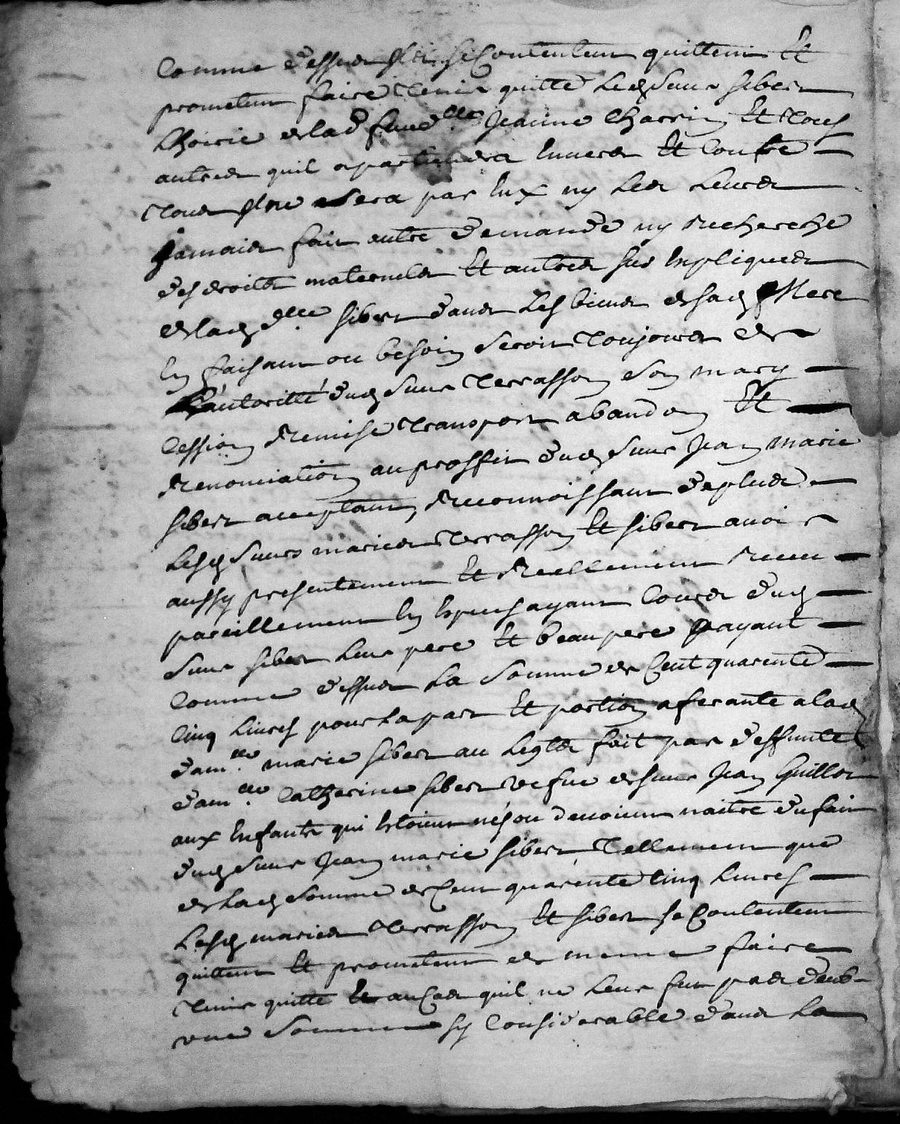 comme dessus se contentent quittent et
prometent faire tenir quitte led sieur sibert
lhoirie de lad feue dlle Jeanne Charrin et tous
autres quil apartiendra envers et contre
tous sera par eux ny les leurs
jamais fait autre demande ny recherche
des droits maternels et autres sus expliques
de lad dlle sibert dans les biens de sad Mere
en faisant ou besoin seroit toujours de
l'autoritté dud sieur terrasson son mary
cession remise transport abandon et
renonciation au proffit dud sieur Jean marie
sibert acceptant, reconnoissant de plus
lesd sieurs maries terrasson et sibert avoir
aussy presentement et reellement receu
pareillement en especes ayant cours dud
sieur sibert leur pere et beaupere payant
comme dessus la somme de cent quarente
cinq livres pour la part et portion aferante a lad
dam.lle marie sibert au legt fait par deffunte
dam.lle Catherine sibert vefue de sieur Jean Guillot
aux enfants qui estoient nés ou devoient naitre du fait
dud sieur Jean marie sibert tellement que
de lad somme de cent quarente cinq livres
lesd maries terrasson et sibert se contentent
quittent et prometent de meme faire
tenir quitte et au cas quil ne leur fut pas deub
une somme sy considerable dans la